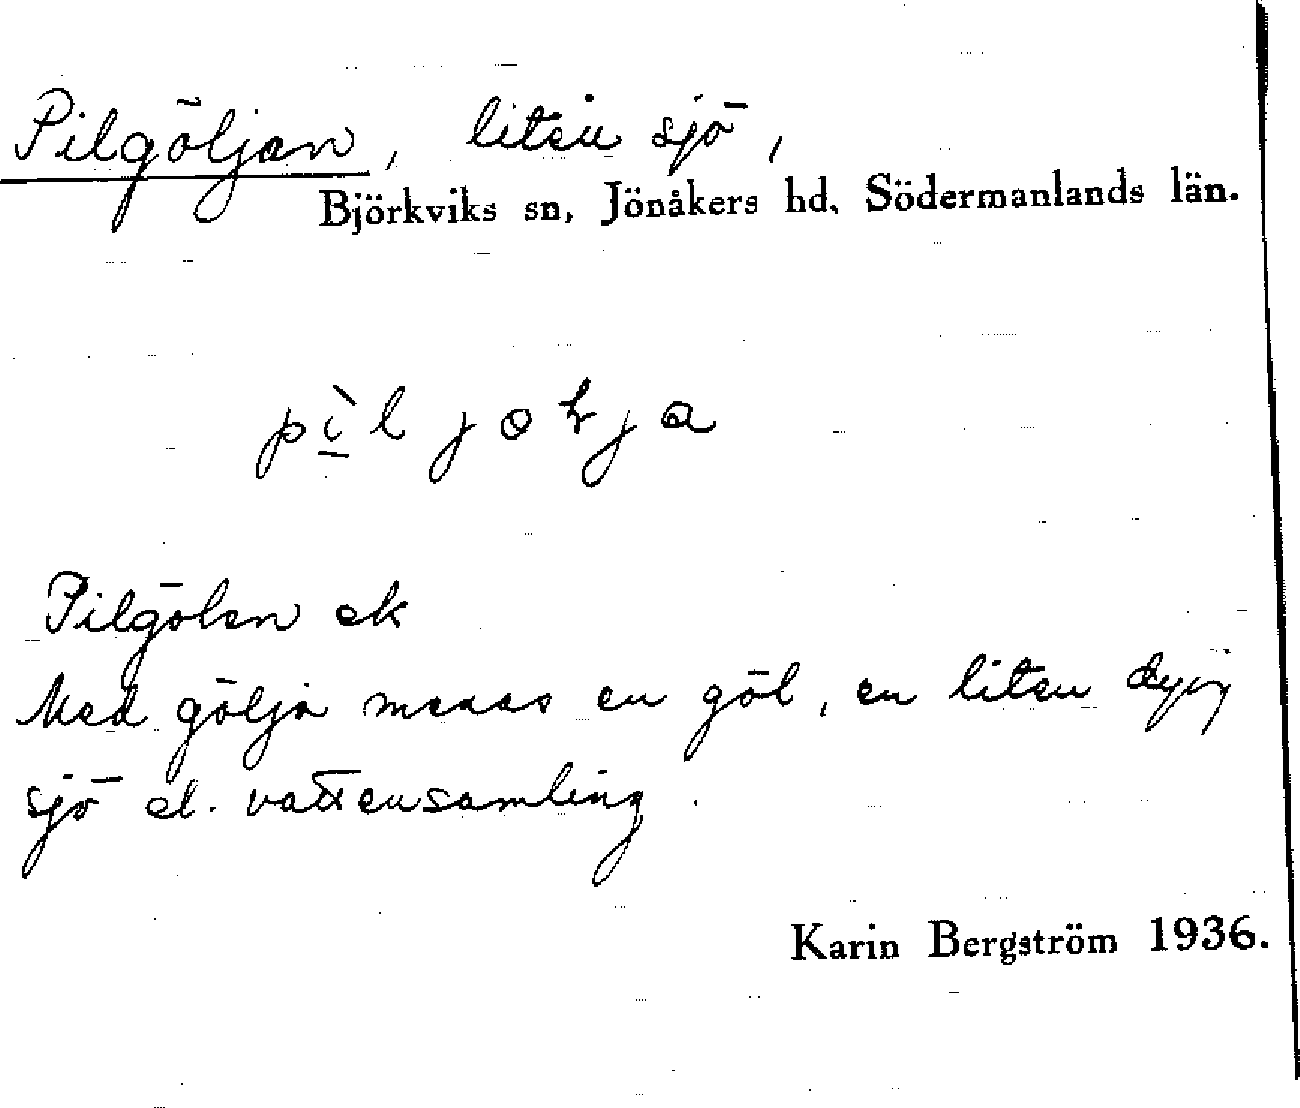 Pilgöljan, liten sjö,
Björkviks sn, Jönåkers hd, Södermanlands län.
pìljoɫja
Pilgölen ek
Med gölja menas en göl, en liten dyig
sjö el. vattensamling.
Karin Bergström 1936.